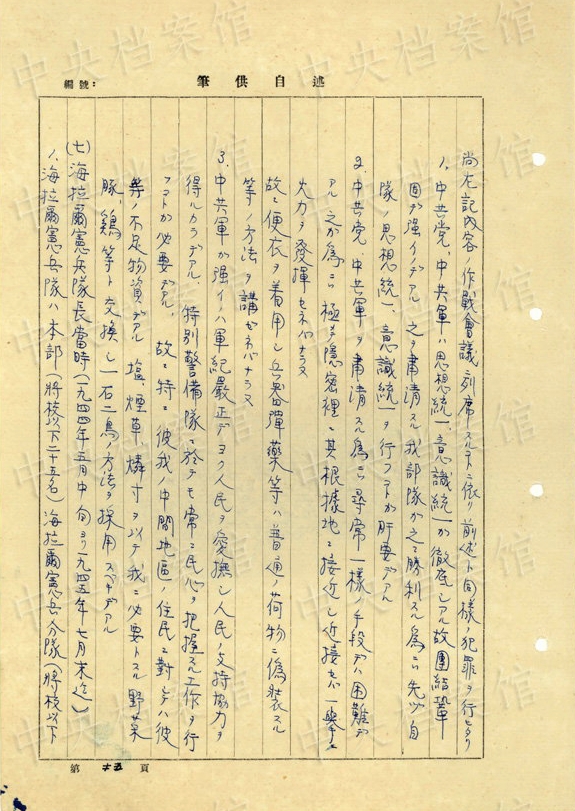 編號：
筆供自述
尚左記內容ノ作戰會議ニ列席スルコトニ依リ前述ト同様ノ犯罪ヲ行ヒタリ
1、中共党、中共軍ハ思想統一、意識統一ガ徹底シアル故團結鞏
固デ強イノデアル 之ヲ肅清スル我部隊ガ之ニ勝利スル為ニハ先ヅ自
隊ノ思想統一、意識統一ヲ行フコトガ肝要デアル
2、中共党 中共軍ヲ肅清スル為ニハ尋常一様ノ手段デハ困難デ
アル 之ガ為ニハ極メテ隱密裡ニ其根據地ニ接近シ近接セバ一擧ニ
火力ヲ發揮セネバナラヌ
故ニ便衣ヲ着用シ兵器彈藥等ハ普通ノ荷物ニ偽裝スル
等ノ方法ヲ講ゼネバナラヌ
3、中共軍ガ強イノハ軍紀嚴正デヨク人民ヲ愛撫シ人民ノ支持協力ヲ
得ルカラデアル、特別警備隊ニ於テモ常ニ民心ヲ把握スル工作ヲ行
フコトガ必要デアル、故ニ特ニ彼我ノ中間地區ノ住民ニ對シテハ彼
等ノ不足物資デアル 塩、煙草、燐寸ヲ以テ我ニ必要トスル野菜
豚、鷄等ト交換シ一石二鳥ノ方法ヲ採用スベキデアル
(七)海拉爾憲兵隊長當時(一九四四年五月中旬ヨリ一九四五年七月末迄)
1、海拉爾憲兵隊ノ本部(將校以下二十五名)海拉爾憲兵分隊(將校以下
第 頁
中央档案馆